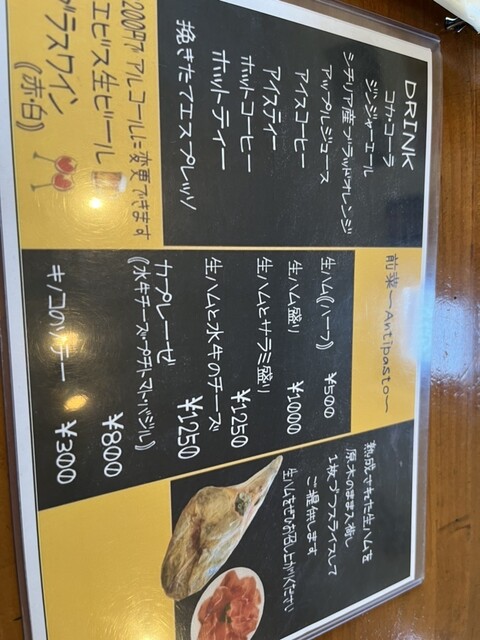 DRINK
コカ・コーラ
ジンジャーエール
シチリア産ブラッドオレンジ
アップルジュース
アイスコーヒー
アイスティー
ホットコーヒー
ホットティー
挽きたてエスプレッソ
200円で アルコールに変更できます
エビス生ビール
グラスワイン
(赤・白)
前菜〜Antipasto〜
生ハム(ハーフ) ¥500
生ハム盛り ¥1000
生ハムとサラミ盛り ¥1250
生ハムと水牛のチーズ ¥1250
カプレーゼ
(水牛チーズ・プチトマト・バジル) ¥800
キノコのソテー ¥300
熟成された生ハムを
原木のまま入荷し
1枚ずつスライスして
ご提供します
生ハムをぜひお召し上がりください